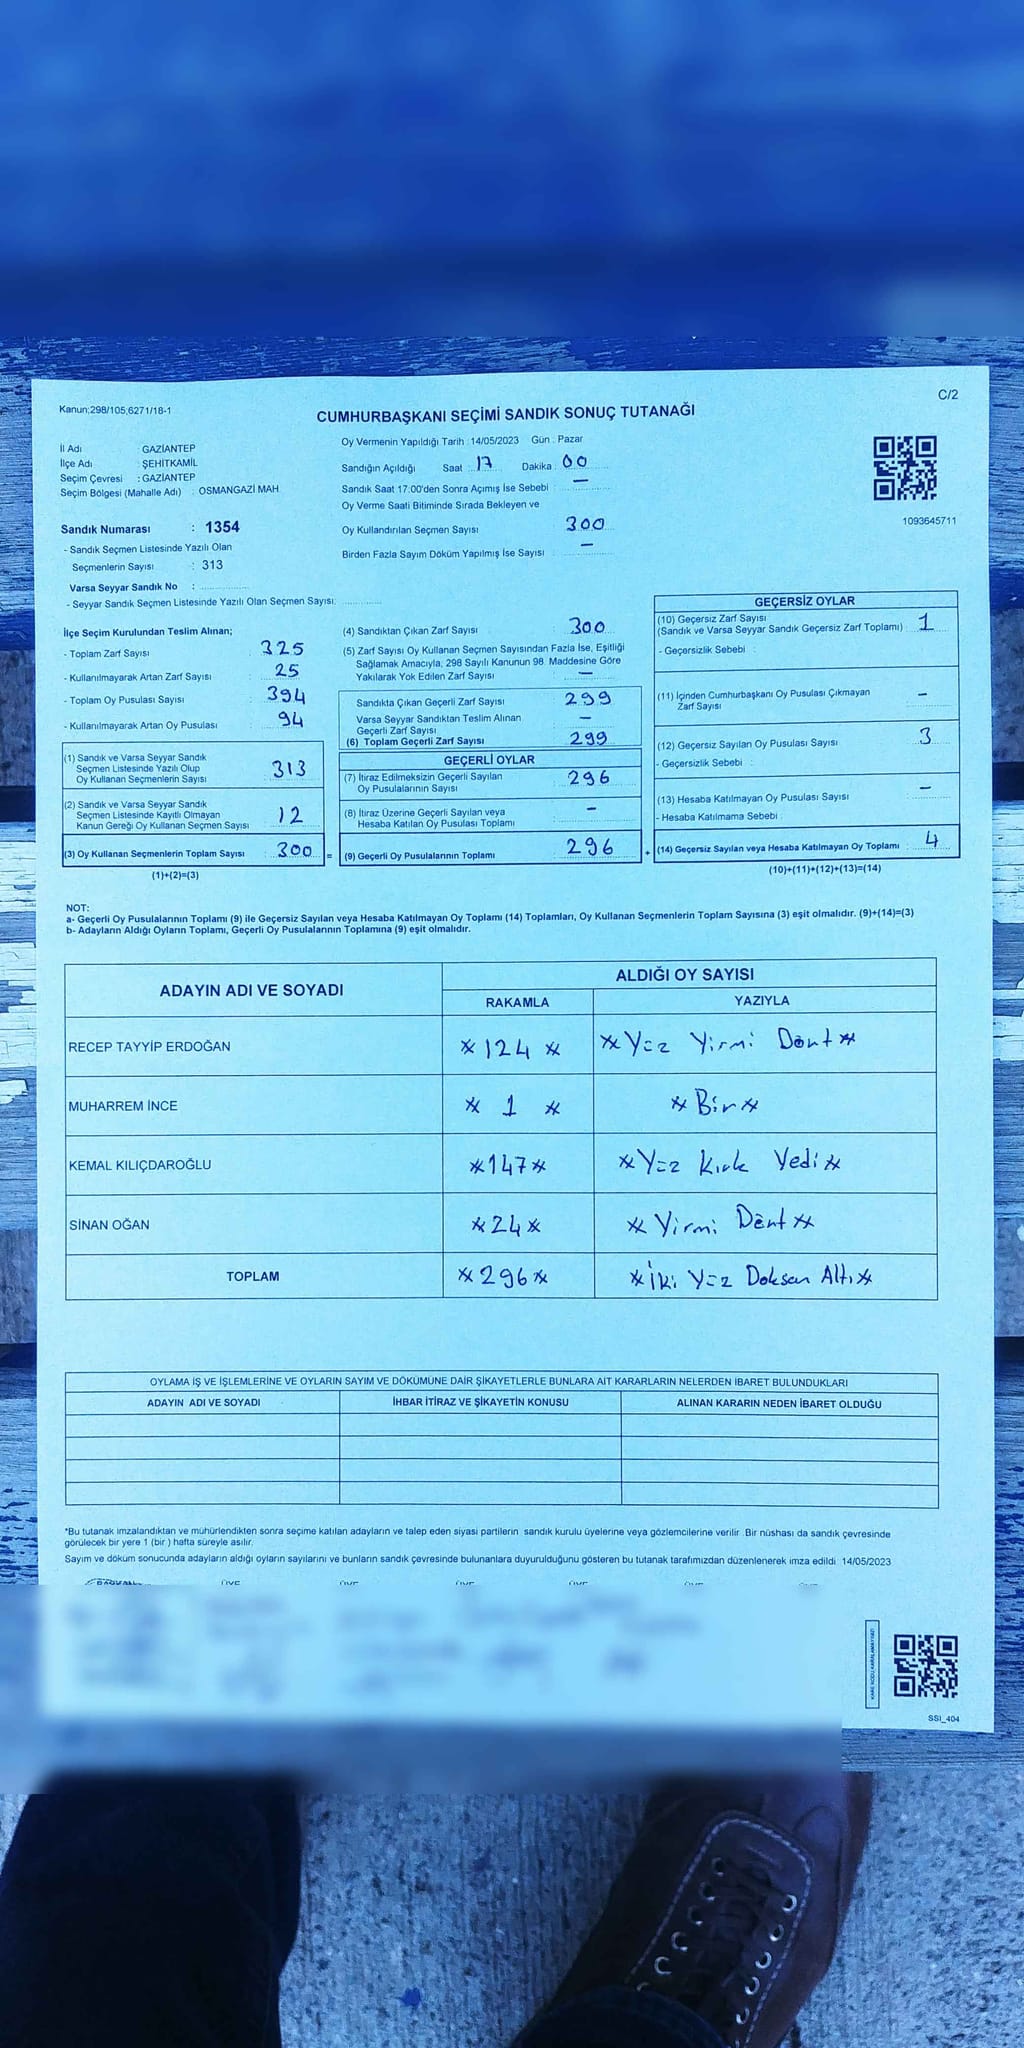 Kanun;298/105;6271/18-1
C/2
CUMHURBAŞKANI SEÇİMİ SANDIK SONUÇ TUTANAĞI
İl Adı : GAZİANTEP
İlçe Adı : ŞEHİTKAMİL
Seçim Çevresi : GAZİANTEP
Seçim Bölgesi (Mahalle Adı) : OSMANGAZİ MAH
Sandık Numarası : 1354
- Sandık Seçmen Listesinde Yazılı Olan
Seçmenlerin Sayısı : 313
Varsa Seyyar Sandık No :
- Seyyar Sandık Seçmen Listesinde Yazılı Olan Seçmen Sayısı:
Oy Vermenin Yapıldığı Tarih : 14/05/2023 Gün : Pazar
Sandığın Açıldığı Saat : 17 Dakika : 00
Sandık Saat 17:00'den Sonra Açımış İse Sebebi : —
Oy Verme Saati Bitiminde Sırada Bekleyen ve
Oy Kullandırılan Seçmen Sayısı 300
Birden Fazla Sayım Döküm Yapılmış İse Sayısı : —
1093645711
İlçe Seçim Kurulundan Teslim Alınan;
- Toplam Zarf Sayısı : 325
- Kullanılmayarak Artan Zarf Sayısı : 25
- Toplam Oy Pusulası Sayısı : 394
- Kullanılmayarak Artan Oy Pusulası : 94
(1) Sandık ve Varsa Seyyar Sandık
Seçmen Listesinde Yazılı Olup
Oy Kullanan Seçmenlerin Sayısı : 313
(2) Sandık ve Varsa Seyyar Sandık
Seçmen Listesinde Kayıtlı Olmayan
Kanun Gereği Oy Kullanan Seçmen Sayısı : 12
(3) Oy Kullanan Seçmenlerin Toplam Sayısı : 300 =
(1)+(2)=(3)
(4) Sandıktan Çıkan Zarf Sayısı : 300
(5) Zarf Sayısı Oy Kullanan Seçmen Sayısından Fazla İse, Eşitliği
Sağlamak Amacıyla, 298 Sayılı Kanunun 98. Maddesine Göre
Yakılarak Yok Edilen Zarf Sayısı : —
Sandıkta Çıkan Geçerli Zarf Sayısı : 299
Varsa Seyyar Sandıktan Teslim Alınan
Geçerli Zarf Sayısı : —
(6) Toplam Geçerli Zarf Sayısı : 299
GEÇERLİ OYLAR
(7) İtiraz Edilmeksizin Geçerli Sayılan
Oy Pusulalarının Sayısı : 296
(8) İtiraz Üzerine Geçerli Sayılan veya
Hesaba Katılan Oy Pusulası Toplamı : —
(9) Geçerli Oy Pusulalarının Toplamı : 296 +
GEÇERSİZ OYLAR
(10) Geçersiz Zarf Sayısı
(Sandık ve Varsa Seyyar Sandık Geçersiz Zarf Toplamı) : 1
- Geçersizlik Sebebi :
(11) İçinden Cumhurbaşkanı Oy Pusulası Çıkmayan
Zarf Sayısı : —
(12) Geçersiz Sayılan Oy Pusulası Sayısı : 3
- Geçersizlik Sebebi :
(13) Hesaba Katılmayan Oy Pusulası Sayısı : —
- Hesaba Katılmama Sebebi :
(14) Geçersiz Sayılan veya Hesaba Katılmayan Oy Toplamı : 4
(10)+(11)+(12)+(13)=(14)
NOT:
a- Geçerli Oy Pusulalarının Toplamı (9) ile Geçersiz Sayılan veya Hesaba Katılmayan Oy Toplamı (14) Toplamları, Oy Kullanan Seçmenlerin Toplam Sayısına (3) eşit olmalıdır. (9)+(14)=(3)
b- Adayların Aldığı Oyların Toplamı, Geçerli Oy Pusulalarının Toplamına (9) eşit olmalıdır.
ADAYIN ADI VE SOYADI ALDIĞI OY SAYISI
RAKAMLA YAZIYLA
RECEP TAYYİP ERDOĞAN *124* *Yüz Yirmi Dört*
MUHARREM İNCE *1* *Bir*
KEMAL KILIÇDAROĞLU *147* *Yüz Kırk Yedi*
SİNAN OĞAN *24* *Yirmi Dört*
TOPLAM *296* *İki Yüz Doksan Altı*
OYLAMA İŞ VE İŞLEMLERİNE VE OYLARIN SAYIM VE DÖKÜMÜNE DAİR ŞİKAYETLERLE BUNLARA AİT KARARLARIN NELERDEN İBARET BULUNDUKLARI
ADAYIN ADI VE SOYADI İHBAR İTİRAZ VE ŞİKAYETİN KONUSU ALINAN KARARIN NEDEN İBARET OLDUĞU
*Bu tutanak imzalandıktan ve mühürlendikten sonra seçime katılan adayların ve talep eden siyasi partilerin sandık kurulu üyelerine veya gözlemcilerine verilir. Bir nüshası da sandık çevresinde
görülecek bir yere 1 (bir ) hafta süreyle asılır.
Sayım ve döküm sonucunda adayların aldığı oyların sayılarını ve bunların sandık çevresinde bulunanlara duyurulduğunu gösteren bu tutanak tarafımızdan düzenlenerek imza edildi. 14/05/2023
BAŞKAN ÜYE ÜYE ÜYE ÜYE ÜYE ÜYE
SSI_404